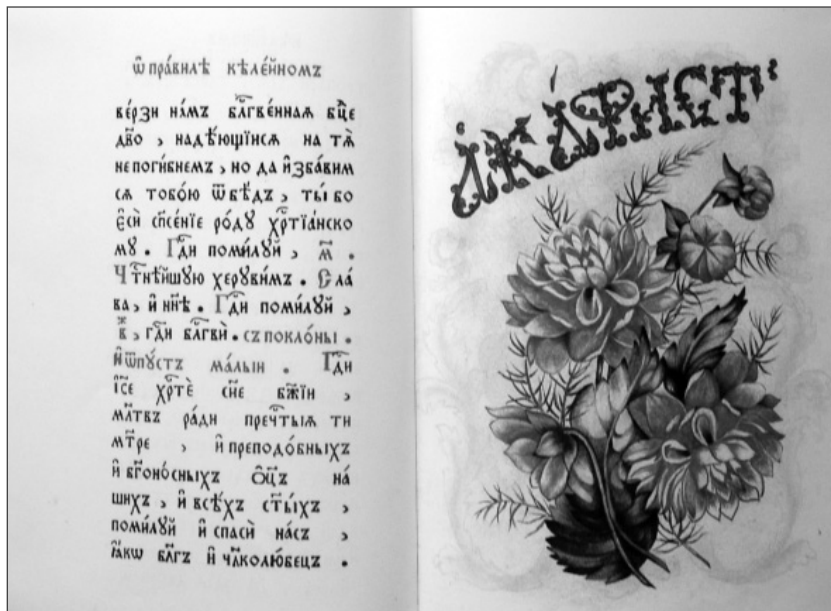 Ѡ҆ пра́вилѣ кѣле́йномъ
ве́рзи на́мъ бл҃гве́ннаѧ бц҃е
дв҃о , надѣ́ющїисѧ на тѧ̀
не поги́бнемъ , но да и҆зба́вим
сѧ тобо́ю ѿ бѣ́дъ , ты́ бо
є҆сѝ сп҃се́нїе ро́дꙋ хрⷭ҇тїа́нско
мꙋ . Гдⷭ҇и поми́лꙋй , м҃ .
Чтⷭ҇нѣ́йшꙋю херꙋви́мъ . Сла́
ва , и҆ нн҃ѣ . Гдⷭ҇и поми́лꙋй ,
в҃ⷤ , гдⷭ҇и блⷭ҇гвѝ . съ покло́ны .
и҆ ѿпꙋ́стъ ма́лыи . Гдⷭ҇и
і҆с҃е хрⷭ҇тѐ сн҃е бж҃їи ,
мл҃твъ ра́ди пречⷭ҇тыѧ ти
мт҃ре , и҆ преподо́бныхъ
и҆ бг҃оно́сныхъ ѻ҆ц҃ъ на́
шихъ , и҆ всѣ́хъ ст҃ы́хъ ,
поми́лꙋй и҆ спасѝ на́съ ,
ꙗ҆́кѡ бл҃гъ и҆ чл҃колю́бецъ .
А҆КА́ѲИСТ